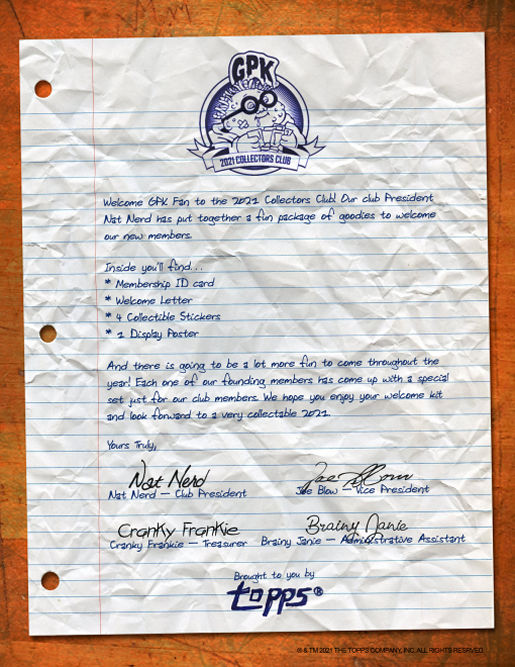 GPK
2021 COLLECTORS CLUB
Welcome GPK Fan to the 2021 Collectors Club! Our club President
Nat Nerd has put together a fun package of goodies to welcome
our new members.
Inside you'll find...
* Membership ID card
* Welcome Letter
* 4 Collectible Stickers
* 1 Display Poster
And there is going to be a lot more fun to come throughout the
year! Each one of our founding members has come up with a special
set just for our club members. We hope you enjoy your welcome kit
and look forward to a very collectable 2021.
Yours Truly,
Nat Nerd
Joe Blow
Nat Nerd – Club President
Joe Blow – Vice President
Cranky Frankie
Brainy Janie
Cranky Frankie – Treasurer
Brainy Janie – Administrative Assistant
Brought to you by
topps®
® & TM 2021 THE TOPPS COMPANY, INC. ALL RIGHTS RESERVED.